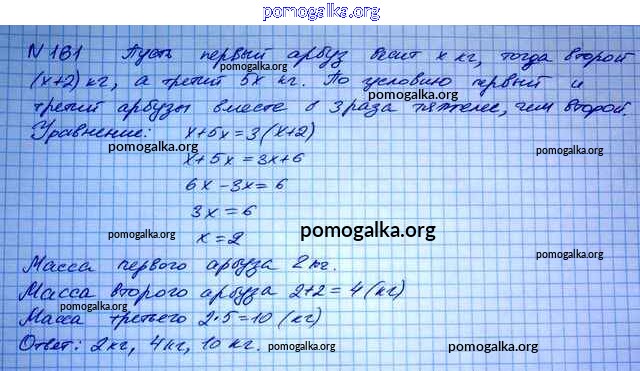 pomogalka.org
N 161 Пусть первый арбуз весит x кг, тогда второй
pomogalka.org
(x+2) кг, а третий 5x кг. По условию первый и
pomogalka.org
третий арбузы вместе в 3 раза тяжелее, чем второй.
Уравнение: x+5x=3(x+2)
pomogalka.org pomogalka.org
x+5x=3x+6
6x-3x=6
3x=6
pomogalka.org pomogalka.org
x=2
pomogalka.org
Масса первого арбуза 2 кг.
Масса второго арбуза 2+2=4 (кг)
pomogalka.org
Масса третьего 2·5=10 (кг)
Ответ: 2 кг, 4 кг, 10 кг.
pomogalka.org pomogalka.org